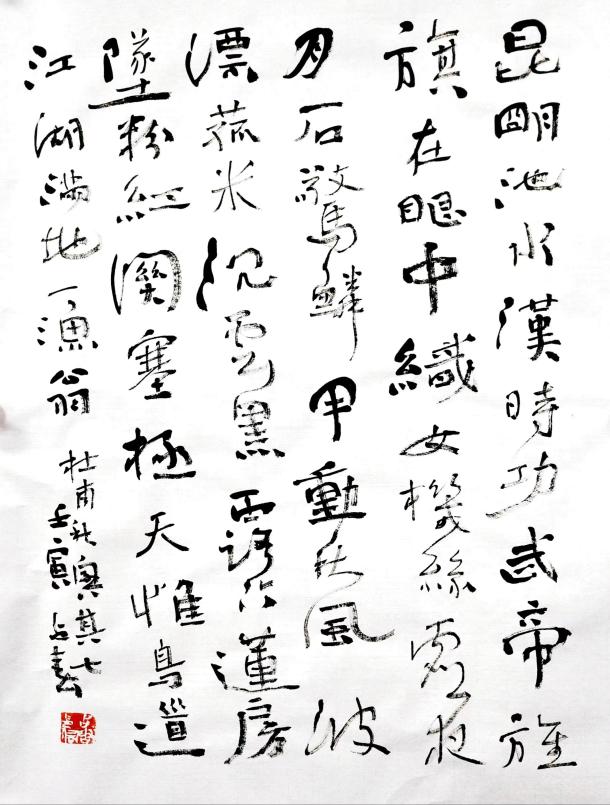 昆明池水漢時功武帝旌
旗在眼中織女機絲虛夜
月石驚鱗甲動秋風波
漂菰米沉雲黑露冷蓮房
墜粉紅關塞極天惟鳥道
江湖滿地一漁翁
杜甫秋興其七
壬寅占春